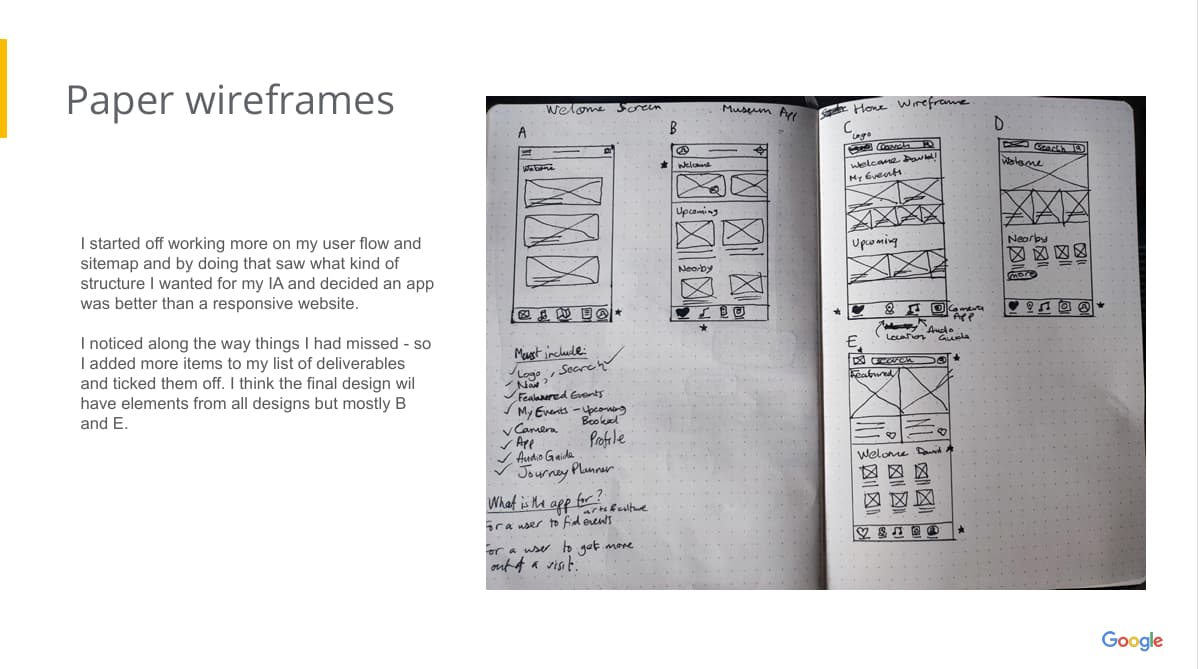 Paper wireframes
I started off working more on my user flow and
sitemap and by doing that saw what kind of
structure I wanted for my IA and decided an app
was better than a responsive website.
I noticed along the way things I had missed - so
I added more items to my list of deliverables
and ticked them off. I think the final design wil
have elements from all designs but mostly B
and E.
Welcome Screen
Museum App
A
Welcome
B
Welcome
Upcoming
Nearby
Must include:
Logo, Search
Nav?
Featured Events
My Events - Upcoming
Booked
Camera
Profile
App
Audio Guide
Journey Planner
What is the app for?
arts & culture
For a user to find events
For a user to get more
out of a visit.
Home Wireframe
C
Logo
Search
Welcome David!
My Events
Upcoming
Camera
App
Location
Audio
Guide
D
Search
Welcome
Nearby
more
E
Search
Featured
Welcome David
Google